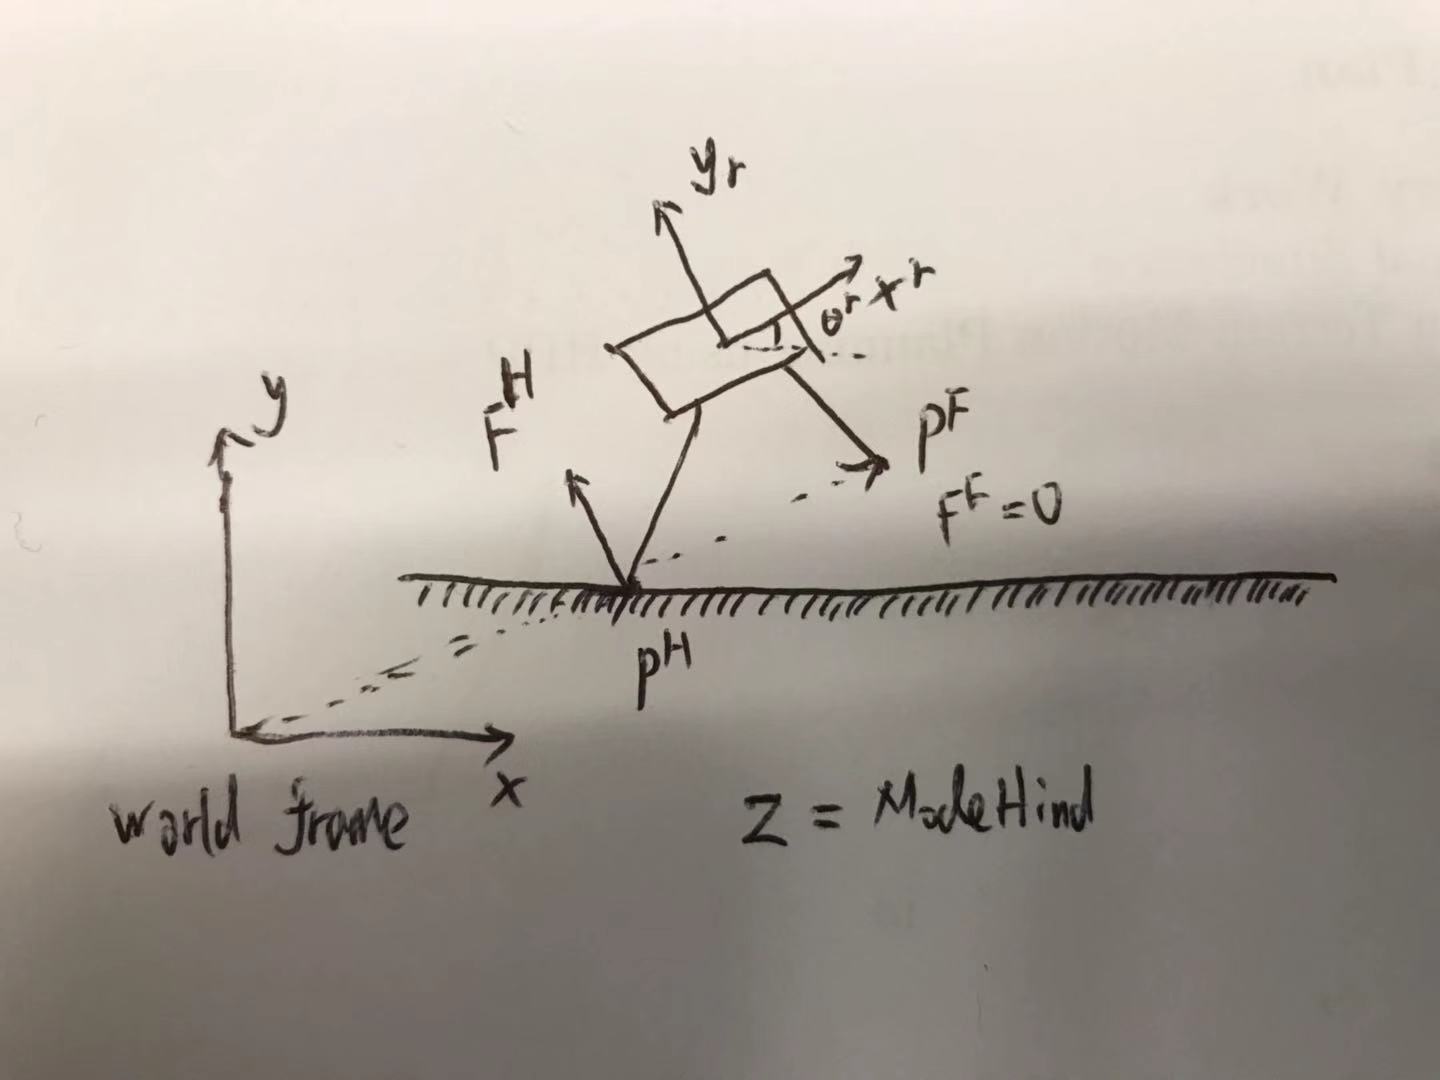 yr
θʳ xʳ
Fᴴ
y
pF
Fᶠ = 0
pᴴ
x
world frame
z = ModeHind